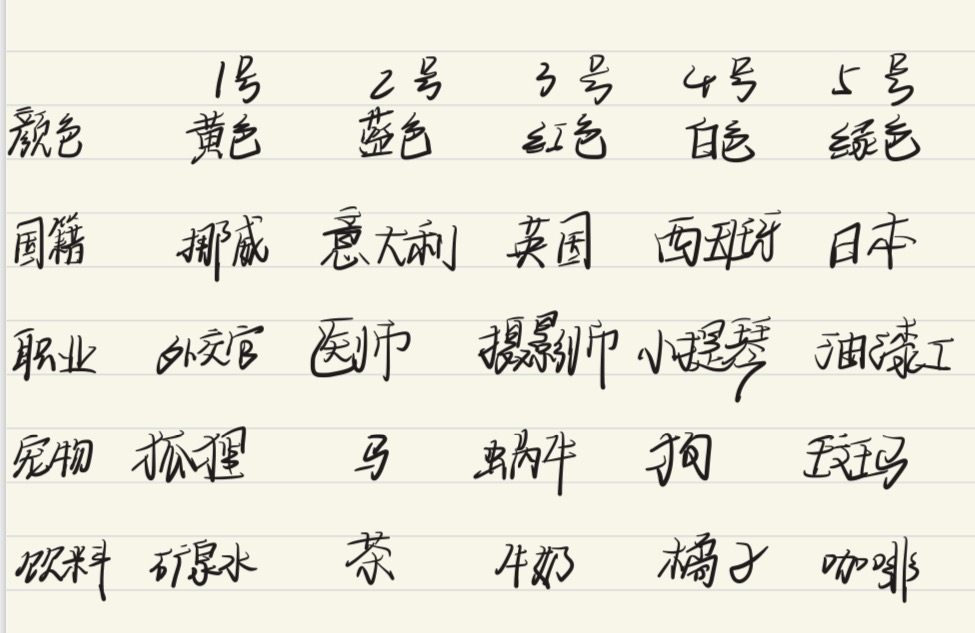 1号 2号 3号 4号 5号
颜色 黄色 蓝色 红色 白色 绿色
国籍 挪威 意大利 英国 西班牙 日本
职业 外交官 医师 摄影师 小提琴 油漆工
宠物 狐狸 马 蜗牛 狗 斑马
饮料 矿泉水 茶 牛奶 橘子 咖啡